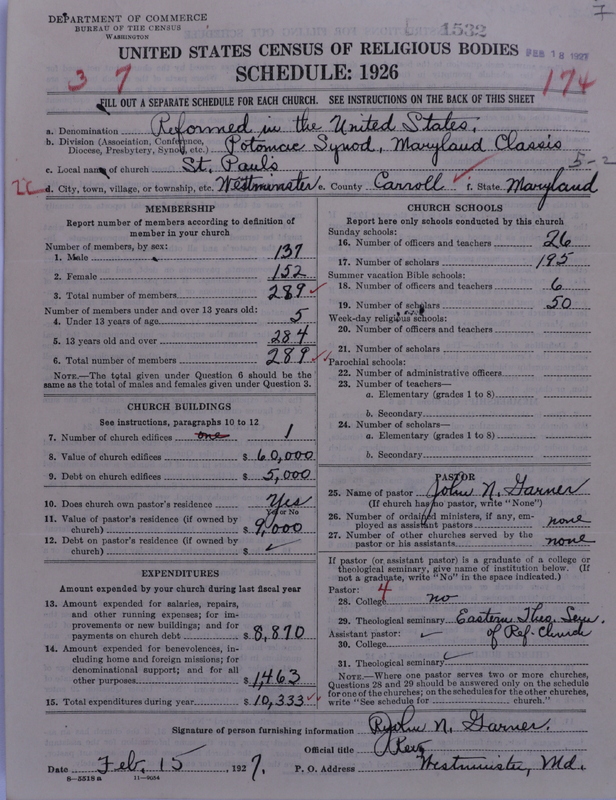 DEPARTMENT OF COMMERCE
BUREAU OF THE CENSUS
WASHINGTON
1532
7
UNITED STATES CENSUS OF RELIGIOUS BODIES
FEB 18 1927
SCHEDULE: 1926
37
174
FILL OUT A SEPARATE SCHEDULE FOR EACH CHURCH. SEE INSTRUCTIONS ON THE BACK OF THIS SHEET
a. Denomination Reformed in the United States.
b. Division (Association, Conference, Diocese, Presbytery, Synod, etc.) Potomac Synod, Maryland Classis
c. Local name of church St. Paul's
5-2
d. City, town, village, or township, etc. Westminster e. County Carroll f. State Maryland
MEMBERSHIP
Report number of members according to definition of
member in your church
Number of members, by sex:
1. Male 137
2. Female 152
3. Total number of members 289
Number of members under and over 13 years old:
4. Under 13 years of age 5
5. 13 years old and over 284
6. Total number of members 289
NOTE.—The total given under Question 6 should be the
same as the total of males and females given under Question 3.
CHURCH BUILDINGS
See instructions, paragraphs 10 to 12
7. Number of church edifices one 1
8. Value of church edifices $ 60,000
9. Debt on church edifices $ 5,000
10. Does church own pastor's residence Yes
Yes or No
11. Value of pastor's residence (if owned by
church) $ 9,000
12. Debt on pastor's residence (if owned by
church) $ ✓
EXPENDITURES
Amount expended by your church during last fiscal year
13. Amount expended for salaries, repairs,
and other running expenses; for im-
provements or new buildings; and for
payments on church debt $ 8,870
14. Amount expended for benevolences, in-
cluding home and foreign missions; for
denominational support; and for all
other purposes $ 1,463
15. Total expenditures during year $ 10,333
CHURCH SCHOOLS
Report here only schools conducted by this church
Sunday schools:
16. Number of officers and teachers 26
17. Number of scholars 195
Summer vacation Bible schools:
18. Number of officers and teachers 6
19. Number of scholars 50
Week-day religious schools:
20. Number of officers and teachers
21. Number of scholars
Parochial schools:
22. Number of administrative officers
23. Number of teachers—
a. Elementary (grades 1 to 8)
b. Secondary
24. Number of scholars—
a. Elementary (grades 1 to 8)
b. Secondary
PASTOR
25. Name of pastor John N. Garner
(If church has no pastor, write "None")
26. Number of ordained ministers, if any, em-
ployed as assistant pastors none
27. Number of other churches served by the
pastor or his assistants none
If pastor (or assistant pastor) is a graduate of a college or
theological seminary, give name of institution below. (If
not a graduate, write "No" in the space indicated.)
Pastor: 4
28. College no
29. Theological seminary Eastern Theo. Sem.
of Ref. Church
Assistant pastor: ✓
30. College
31. Theological seminary ✓
NOTE.—Where one pastor serves two or more churches,
Questions 28 and 29 should be answered only on the schedule
for one of the churches; on the schedules for the other churches,
write "See schedule for church."
Signature of person furnishing information John N. Garner.
Official title Rev.
Date Feb. 15, 1927. P. O. Address Westminster, Md.
8—5518 a 11—9054